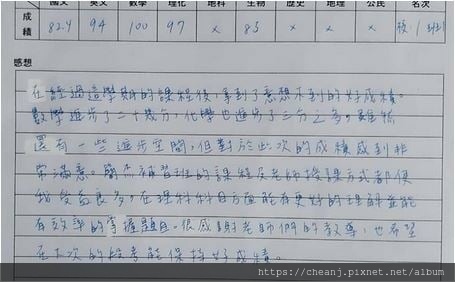 國文 英文 數學 理化 地科 生物 歷史 地理 公民 名次
成績 82.4 94 100 97 x 83 x x x 校:1
感想
在經過這學期的課程後,拿到了意想不到的好成績。
數學進步了二十幾分,化學也進步了三分之多,雖然
還有一些進步空間,但對於此次的成績感到非
常滿意。簡杰補習班的課程及老師授課方式都使
我受益良多,在理科科目方面能有更好的理解並能
有效率的掌握題目。很感謝老師們的教導,也希望
在下次的段考能保持好成績。
https://cheanj.pixnet.net/album